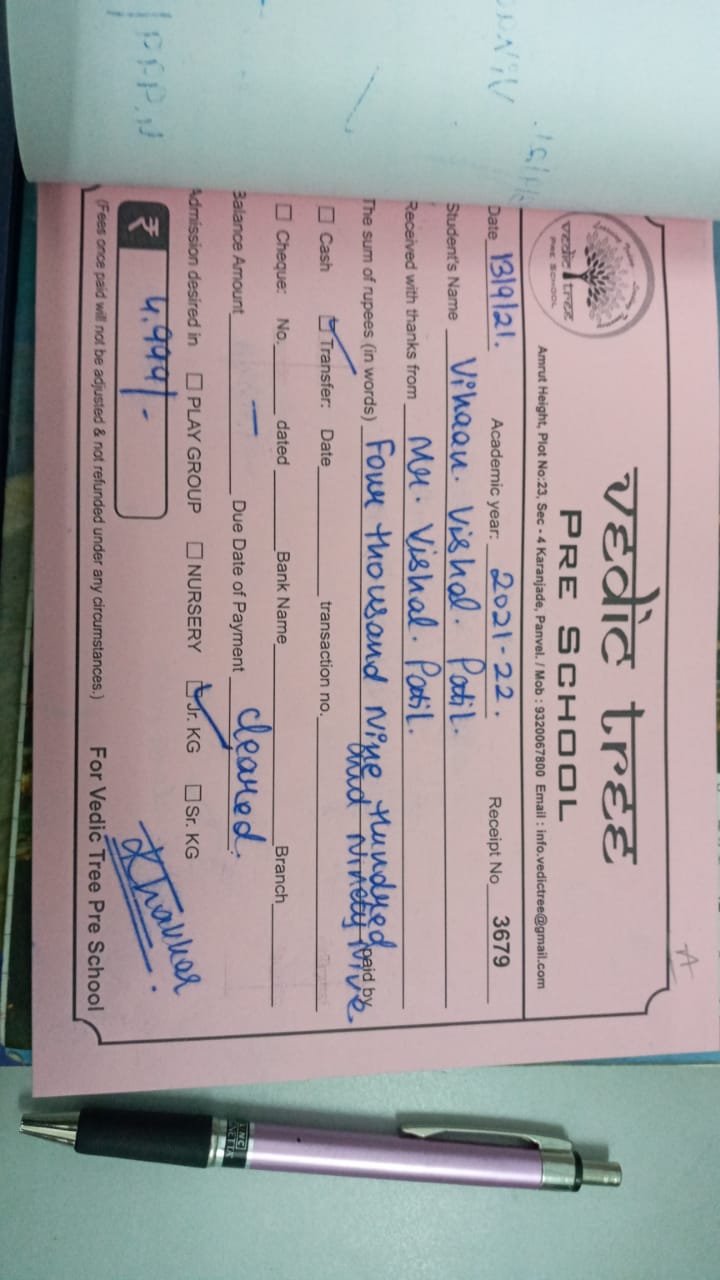 vedic tree
PRE SCHOOL
vedic tree
PRE SCHOOL
Amrut Height, Plot No:23, Sec - 4 Karanjade, Panvel. / Mob : 9320067800 Email : info.vedictree@gmail.com
Date 13/9/21. Academic year: 2021-22. Receipt No 3679
Student's Name Vihaan. Vishal. Patil.
Received with thanks from Mr. Vishal. Patil.
The sum of rupees (in words) Four thousand Nine Hundred paid by
and Ninety Nine.
Cash Transfer: Date transaction no.
Cheque: No. dated Bank Name Branch
Balance Amount — Due Date of Payment cleared.
Admission desired in PLAY GROUP NURSERY Jr. KG Sr. KG
₹ 4,999/-
(Fees once paid will not be adjusted & not refunded under any circumstances.) For Vedic Tree Pre School
A